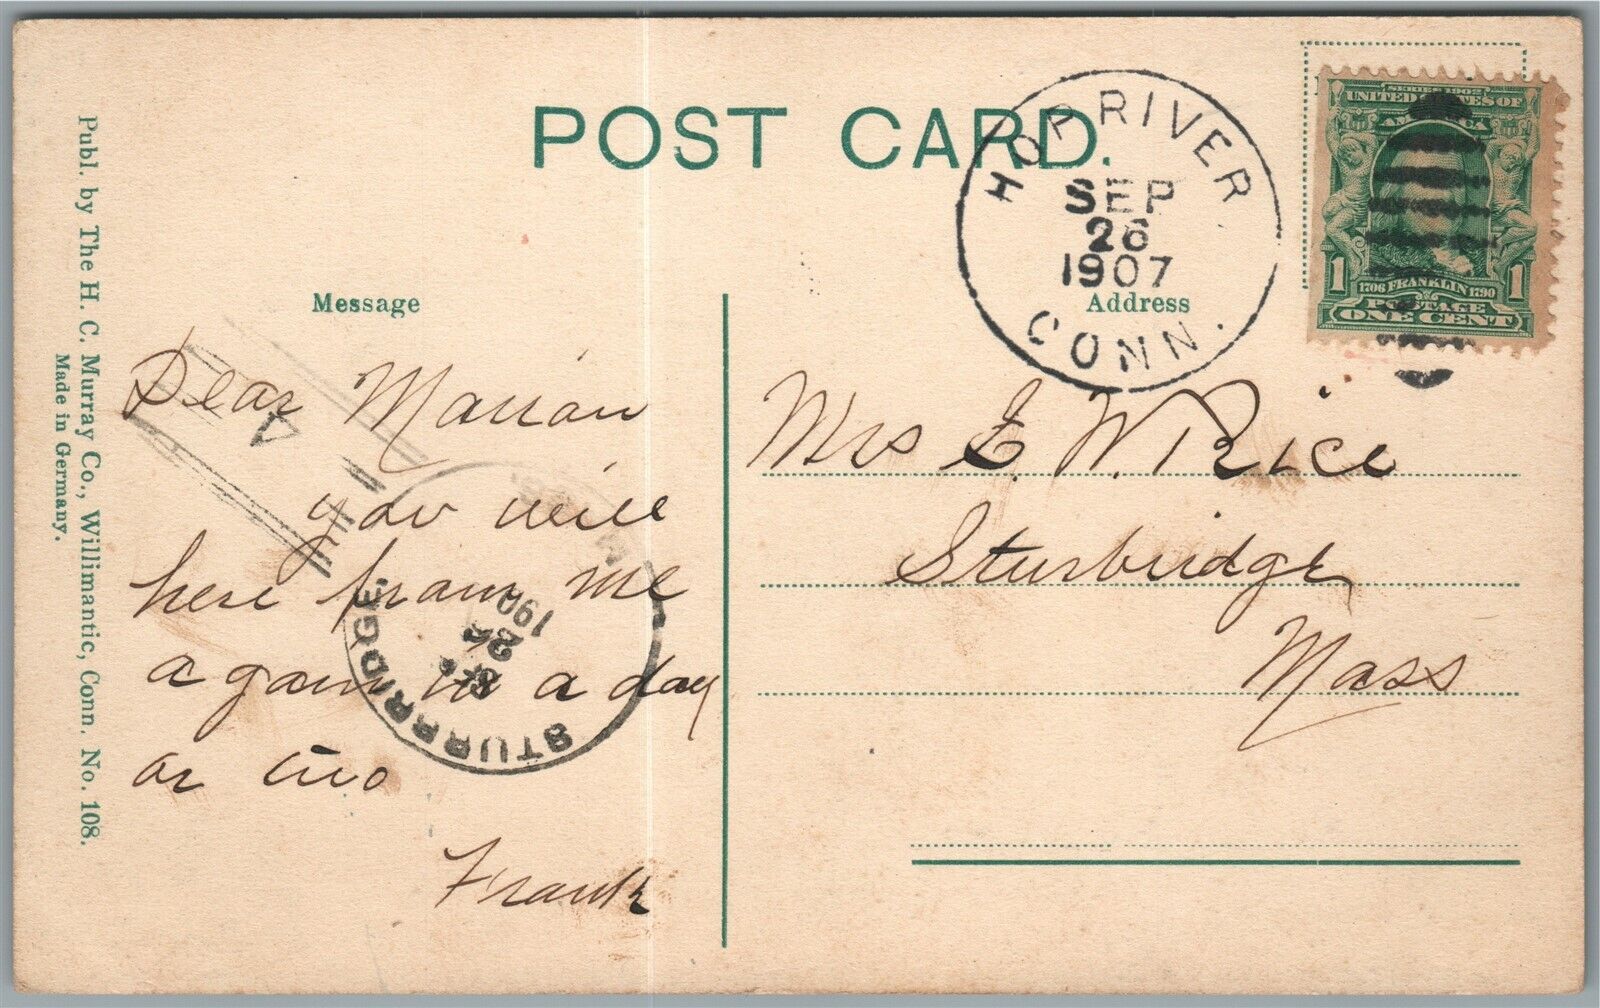 POST CARD.
HOP RIVER
SEP
26
1907
CONN.
SERIES 1902
UNITED STATES OF
AMERICA
1 1706 FRANKLIN 1790 1
POSTAGE
ONE CENT
Publ. by The H. C. Murray Co., Willimantic, Conn. No. 108.
Made in Germany.
Message
Dear Marion
you will
here from me
again in a day
or two
Frank
STURBRIDGE.
26
190
Address
Mrs E. W. Rice
Sturbridge
Mass